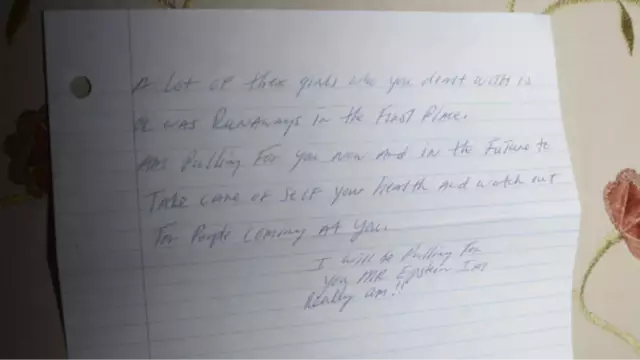 A Lot of these girls who you dealt with is
or was Runaways in the First Place.
Am Pulling For you now And in the Future to
Take care of self your Health And watch out
For People Coming At You.
I will be Pulling For
you MR. Epstein I
Really am!!